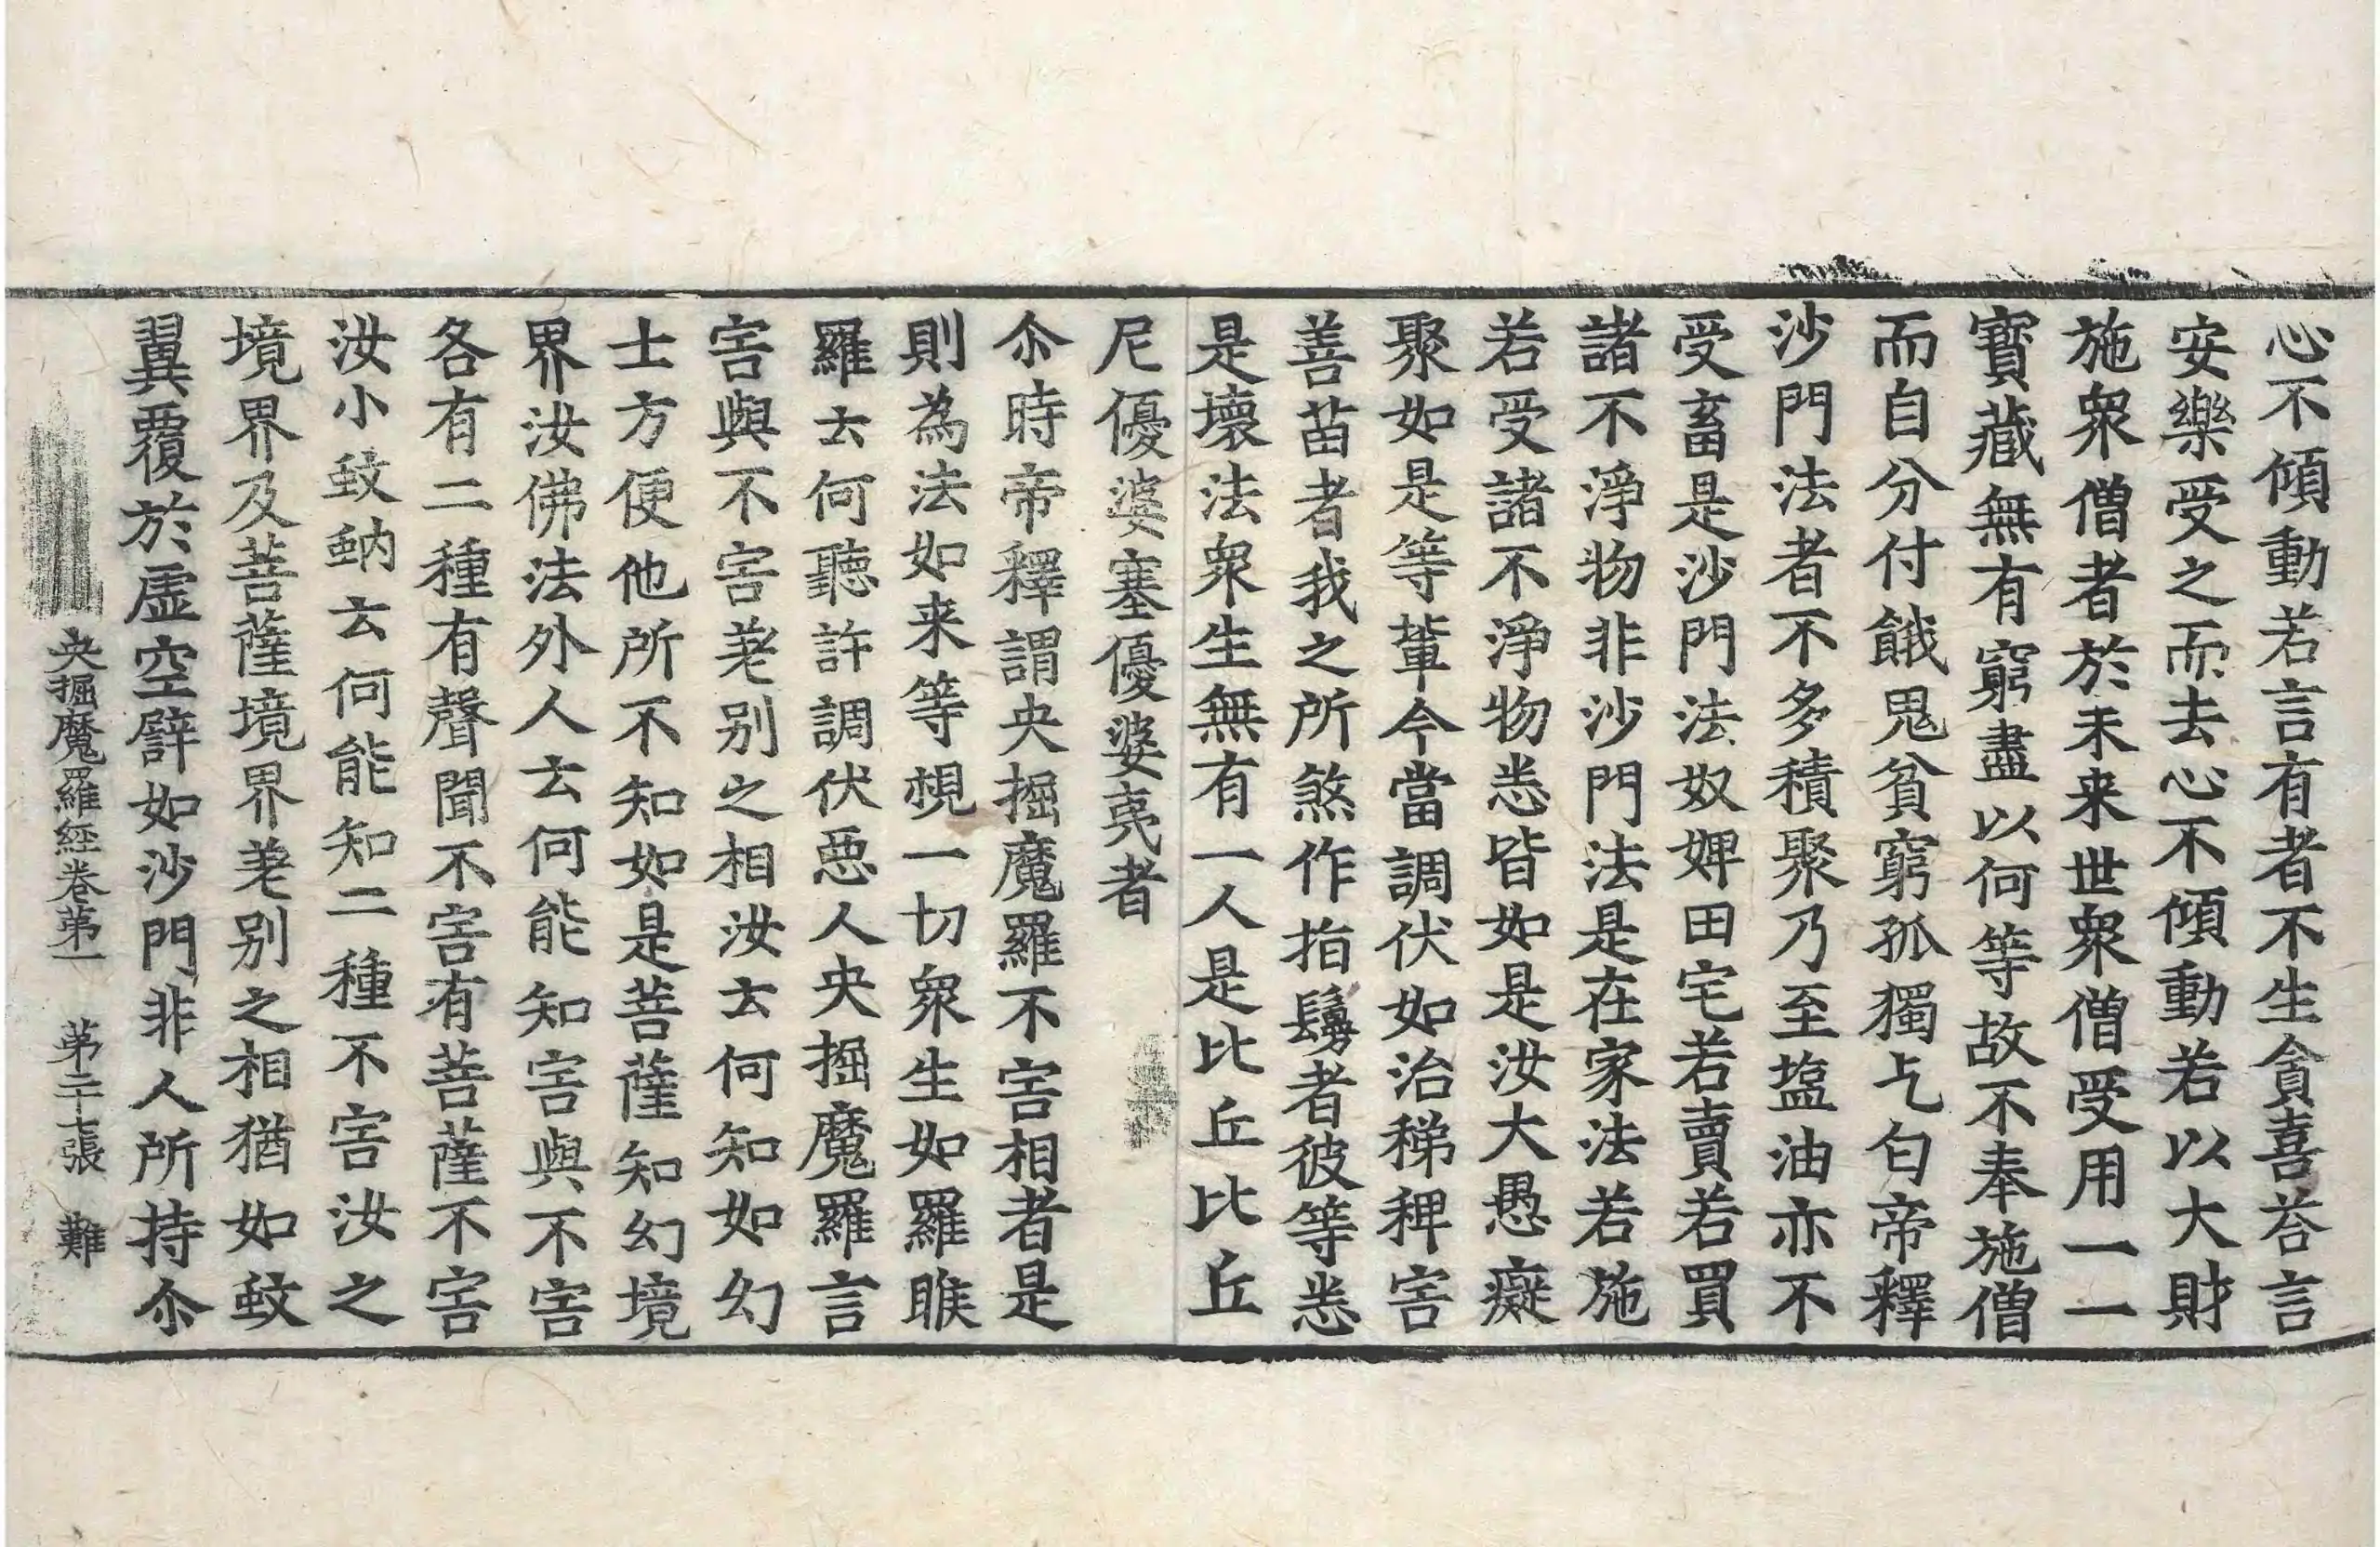 心不傾動若言有者不生貪喜荅言
安樂受之而去心不傾動若以大財
施衆僧者於未来世衆僧受用一一
寶藏無有窮盡以何等故不奉施僧
而自分付餓鬼貧窮孤獨乞匂帝釋
沙門法者不多積聚乃至塩油亦不
受畜是沙門法奴婢田宅若賣若買
諸不淨物非沙門法是在家法若施
若受諸不淨物悉皆如是汝大愚癡
聚如是等輩今當調伏如治稊稗害
善苗者我之所煞作指鬘者彼等悉
是壞法衆生無有一人是比丘比丘
尼優婆塞優婆夷者
尒時帝釋謂央掘魔羅不害相者是
則為法如来等視一切衆生如羅睺
羅云何聽許調伏惡人央掘魔羅言
害與不害差别之相汝云何知如幻
士方便他所不知如是菩薩知幻境
界汝佛法外人云何能知害與不害
各有二種有聲聞不害有菩薩不害
汝小蚊蚋云何能知二種不害汝之
境界及菩薩境界差别之相猶如蚊
翼覆於虛空譬如沙門非人所持尒
央掘魔羅経卷第一 第二十七張 難